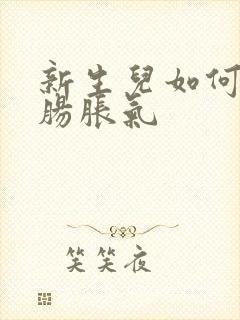 新生兒如何
腸脹氣
笑笑夜